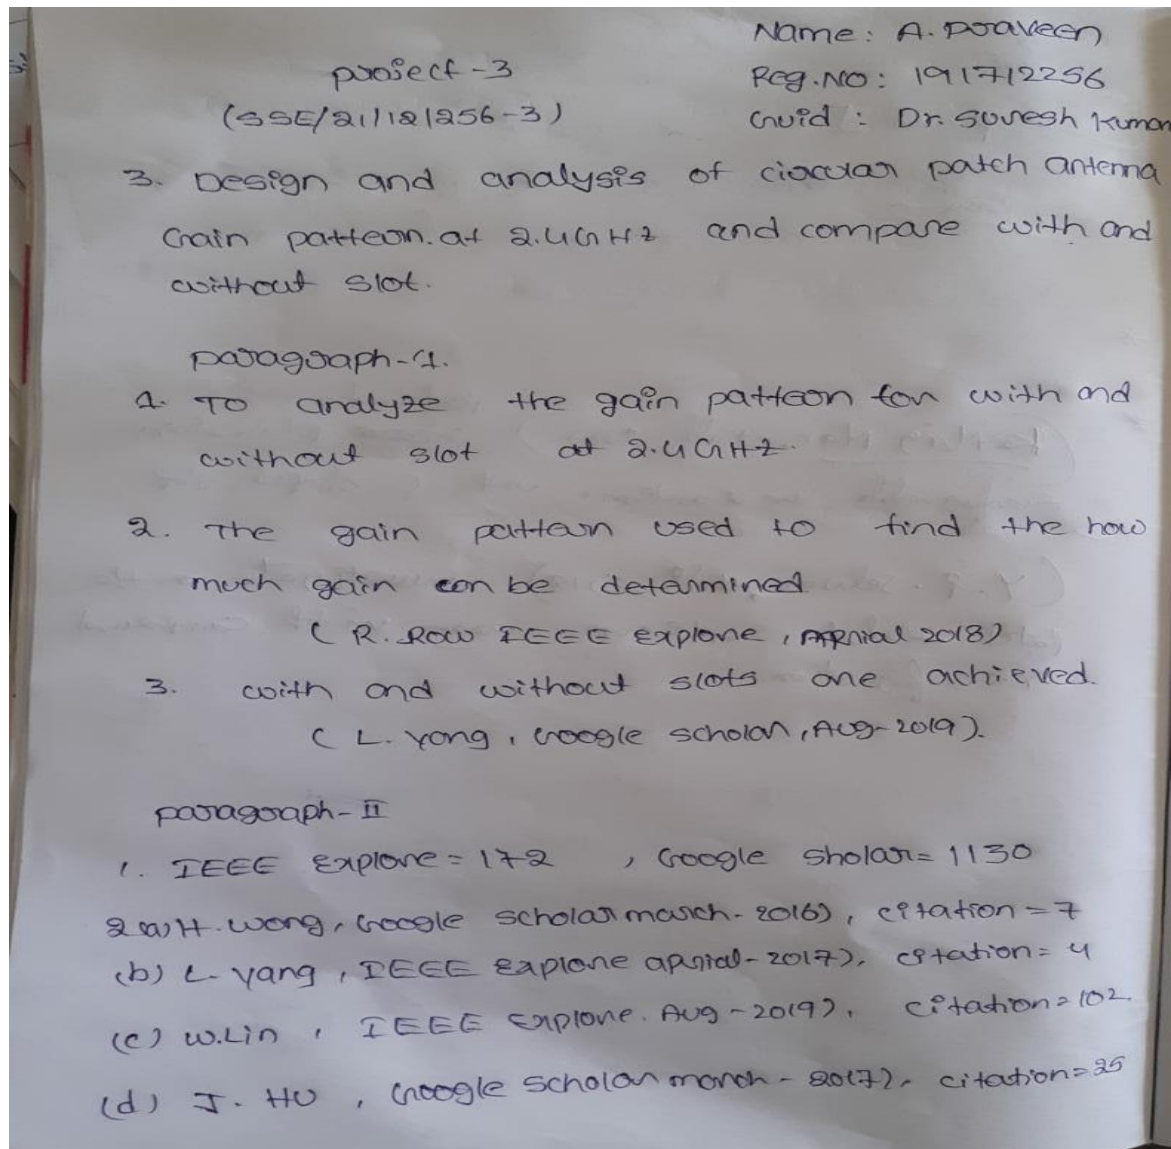 Name: A. Praveen
project-3
Reg.No: 191712256
(SSE/21/12/256-3)
Guid : Dr. Suresh Kumar
3. Design and analysis of circular patch antenna
Gain pattern. at 2.4GHZ and compare with and
without slot.
paragraph-1.
1. TO analyze the gain pattern for with and
without slot at 2.4GHZ.
2. The gain pattern used to find the how
much gain can be determined
(R. Row IEEE Explore, Aprial 2018)
3. with and without slots are achieved.
(L. Yang, Google scholar, Aug-2019).
paragraph-II
1. IEEE Explore = 172 , Google Sholar = 1130
2 a) H. Wong, Google scholar march-2016), citation = 7
(b) L. yang, IEEE Explore aprial-2017), citation = 4
(c) W.Lin , IEEE Explore. Aug-2019), citation = 102.
(d) J. HU , Google scholar march-2017), citation = 25